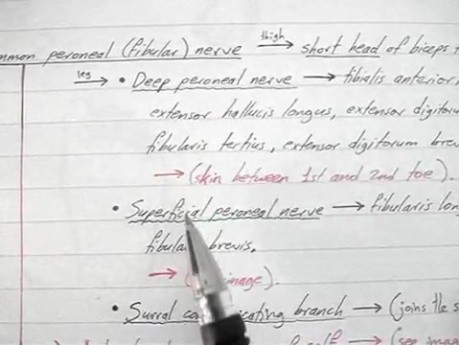 mmon peroneal (fibular) nerve thigh → short head of biceps
leg → • Deep peroneal nerve → tibialis anterior,
extensor hallucis longus, extensor digitoru
fibularis tertius, extensor digitorum brev
→ (skin between 1st and 2nd toe).
• Superficial peroneal nerve → fibularis lon
fibula brevis,
→ ( image).
• Sural co icating branch → (joins the s
(see imag